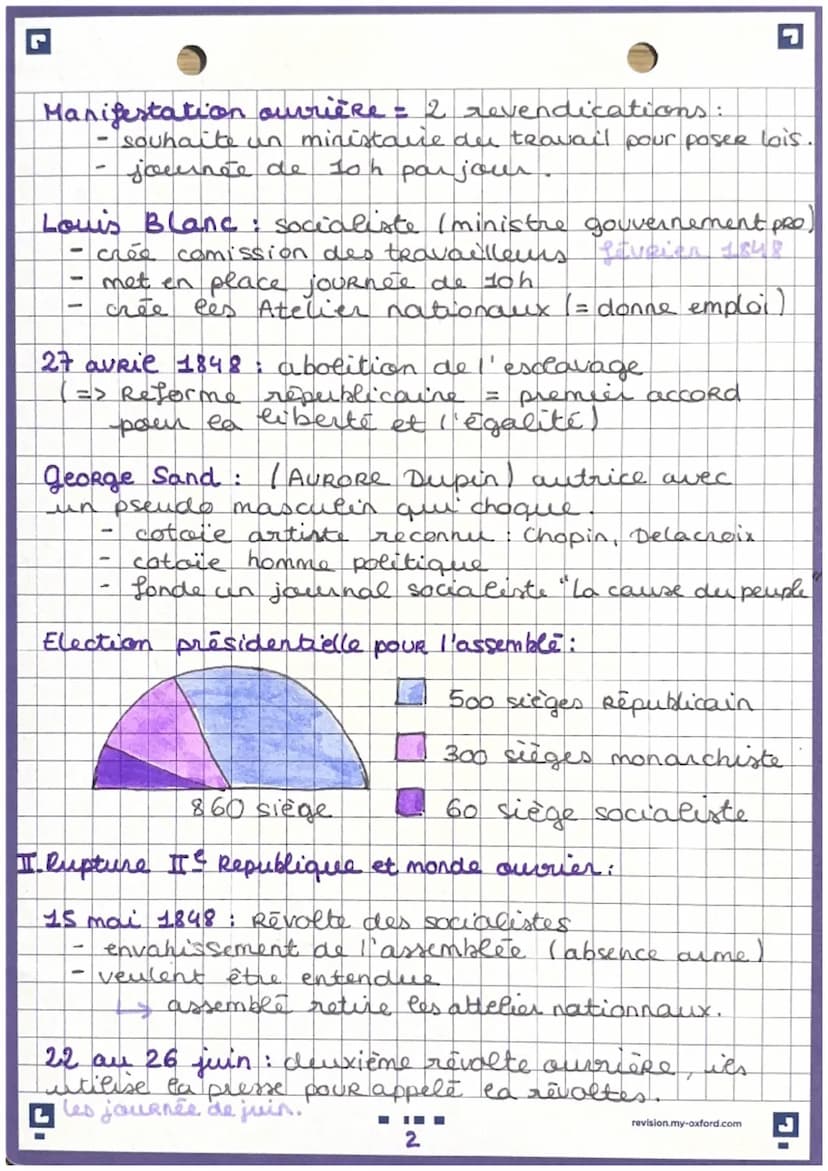 Manifestation ouvrière = 2 revendications :
- souhaite un ministaire du travail pour poser lois.
- journée de 10h par jour.
Louis Blanc : socialiste (ministre gouvernement PRO)
- crée comission des travailleurs février 1848
- met en place journée de 10h
- crée les Atelier nationaux (= donne emploi)
27 avril 1848 : abolition de l'esclavage
(=> Reforme républicaine = premier accord
pour la liberté et l'égalité)
George Sand : (Aurore Dupin) autrice avec
un pseudo masculin qui choque.
- cotoie artiste reconnu : Chopin, Delacroix
- cotoïe homme politique
- fonde un journal socialiste "La cause du peuple"
Election présidentielle pour l'assemblé :
500 sièges Républicain
300 sièges monarchiste
860 siège
60 siège socialiste
II. Rupture IIe Republique et monde ouvrier :
15 mai 1848 : Révolte des socialistes
- envahissement de l'assemblée (absence arme)
- veulent être entendue
↳ assemblé retire les attelier nationnaux.
22 au 26 juin : deuxième révolte ouvrière, ils
utilise la presse pour appelé la révoltes.
les journée de juin.
revision.my-oxford.com
2